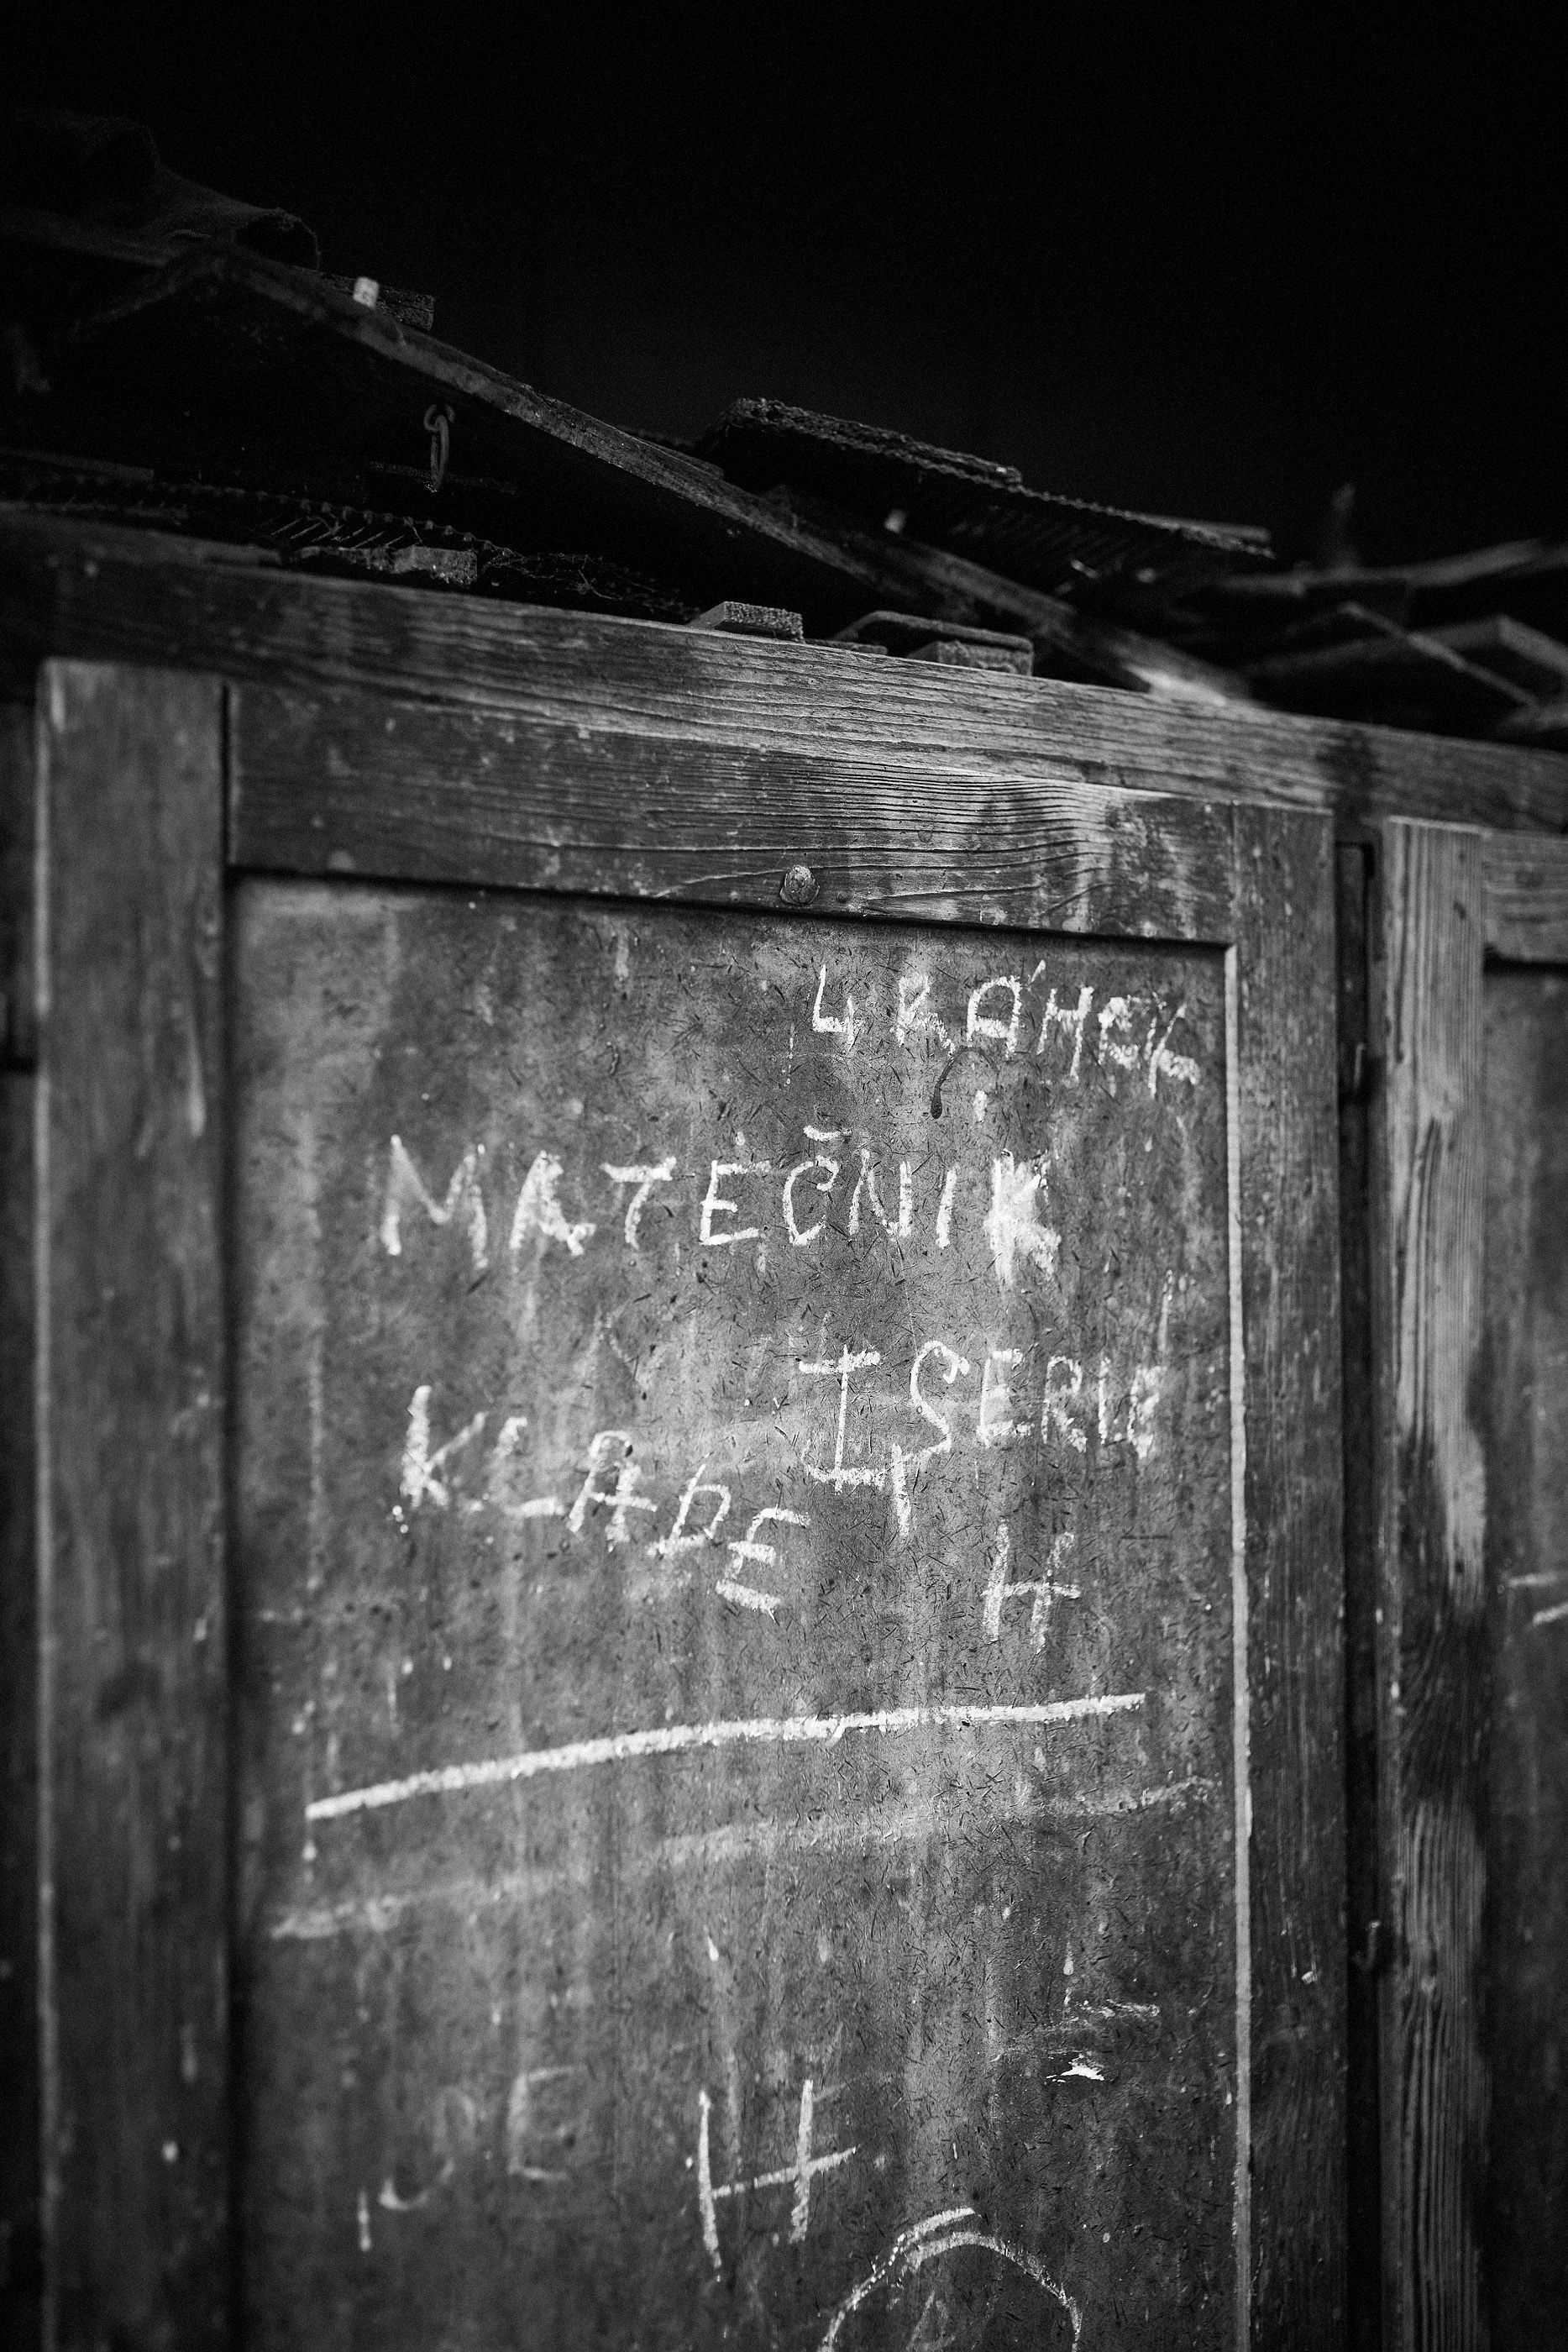 4 RÁMEK
MATEČNIK
I SERIE
KLADE
H
JE H